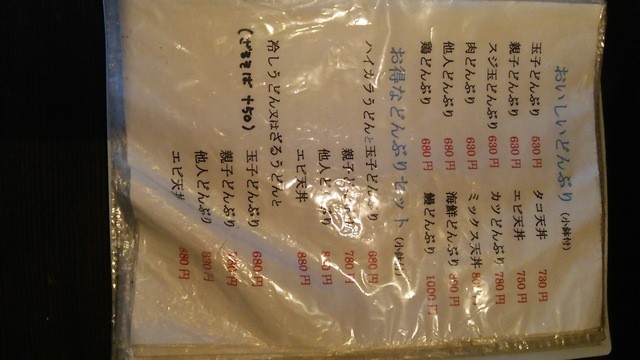 おいしいどんぶり (小鉢付)
玉子どんぶり 530円
親子どんぶり 630円
スジ玉どんぶり 630円
肉どんぶり 630円
他人どんぶり 680円
鶏どんぶり 680円
タコ天丼 730円
エビ天丼 750円
カツどんぶり 780円
ミックス天丼
海鮮どんぶり
鰻どんぶり 1000円
お得などんぶりセット (小鉢付)
ハイカラうどんと玉子どんぶり 680円
親子どんぶり 780円
他人どんぶり
エビ天丼 880円
冷しうどん又はざるうどんと
(ざるそば +50)
玉子どんぶり 680円
親子どんぶり
他人どんぶり 830円
エビ天丼 880円